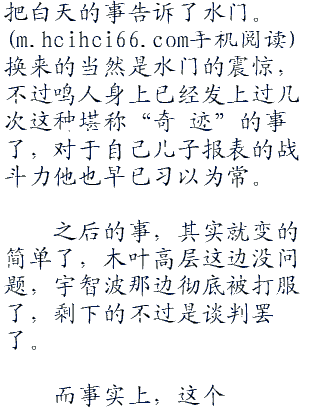 把白天的事告诉了水门。
(m.hcihci66.com手机阅读)
换来的当然是水门的震惊，
不过鸣人身上已经发上过几
次这种堪称“奇 迹”的事
了，对于自己儿子报表的战
斗力他也早已习以为常。
之后的事，其实就变的
简单了，木叶高层这边没问
题，宇智波那边彻底被打服
了，剩下的不过是谈判罢
了。
而事实上，这个